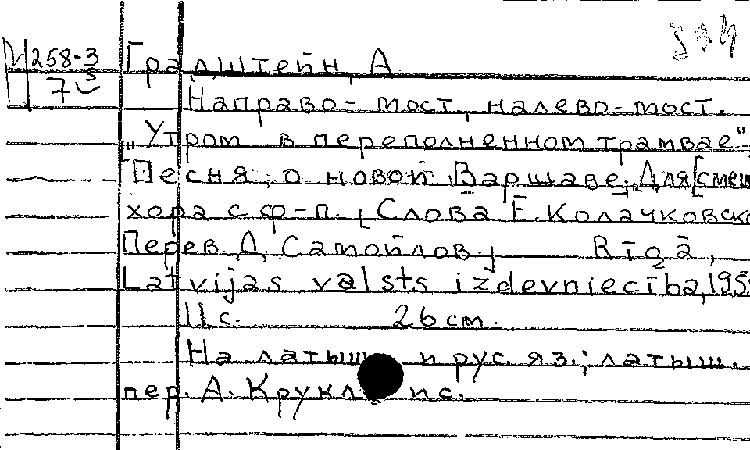 Н 258-3 Градштейн, А
7 5
Направо-мост, налево-мост.
"Утром в переполненном трамвае"-
[Песня о новой Варшаве. Для [смеш
хора с ф-п. [Слова Е. Колачковско
Перев. Д. Самойлов] Rīgā,
Latvijas valsts izdevniecība, 195
11 с. 26 cm.
На латыш. и рус. яз.; латыш.
пер. А. Крукл пс.